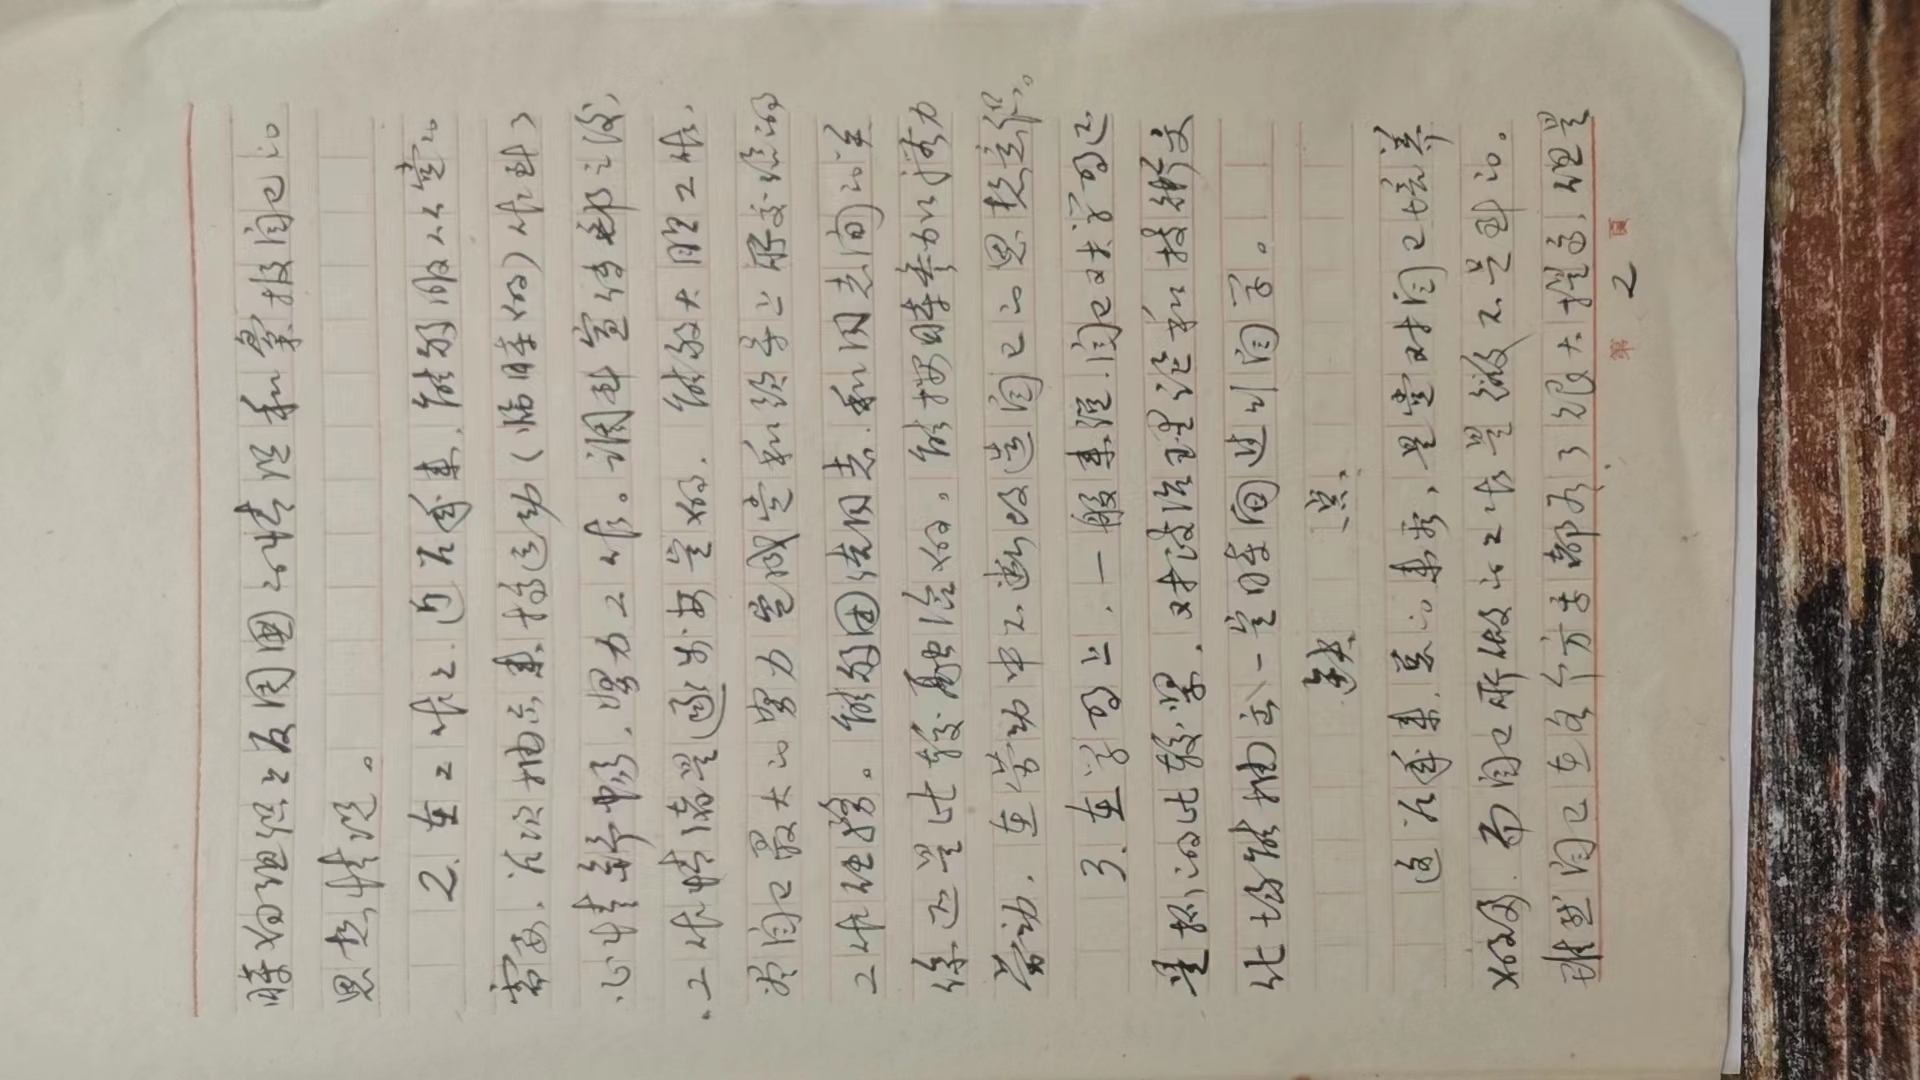 時向组织上反周围的情况和彙报自己的
思想情况。
2. 在工作上，近几年来，能够服从党的
需要，几次抽出来搞运动（临時的）作到了
心情舒畅，努力工作。调到宣传部之后，
工作情绪是逐步安定的，能够大胆工作，
尽自己最大的努力完成党和领导上所交给的
工作任務。能够团结同志，和同志间的关
係还是比较融洽的。能按時参加体力
劳动，在劳动中不断改造自己的思想意识。
3. 在学习上，一般来说，自己对学习还
是抓的比较紧，对政治理论和技術文
化均能抽出一定時间进行自学。
缺 点
这几年来，总的来看，是党对自己培养
的多，而自己所做的工作是微不足到的。
虽然自己在各个方面都有了很大提高，但是
第 2 頁